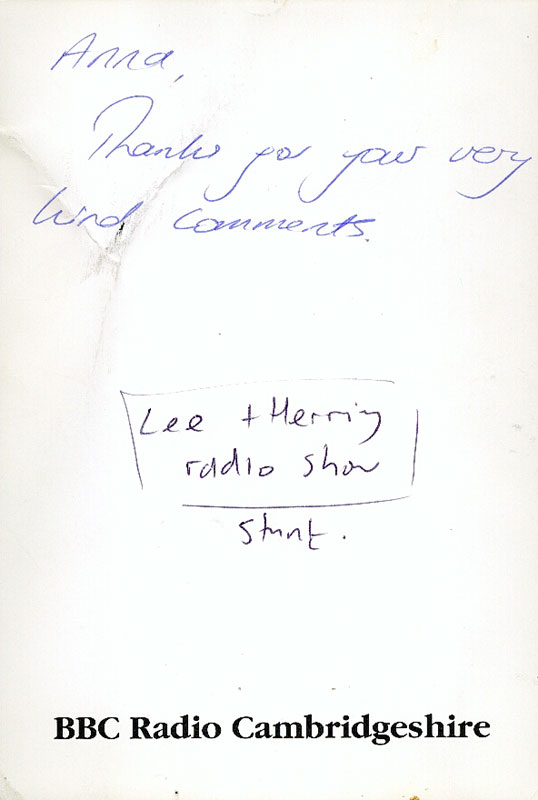 Anna,
Thanks for your very
kind comments.
Lee + Herring
radio show
stunt.
BBC Radio Cambridgeshire